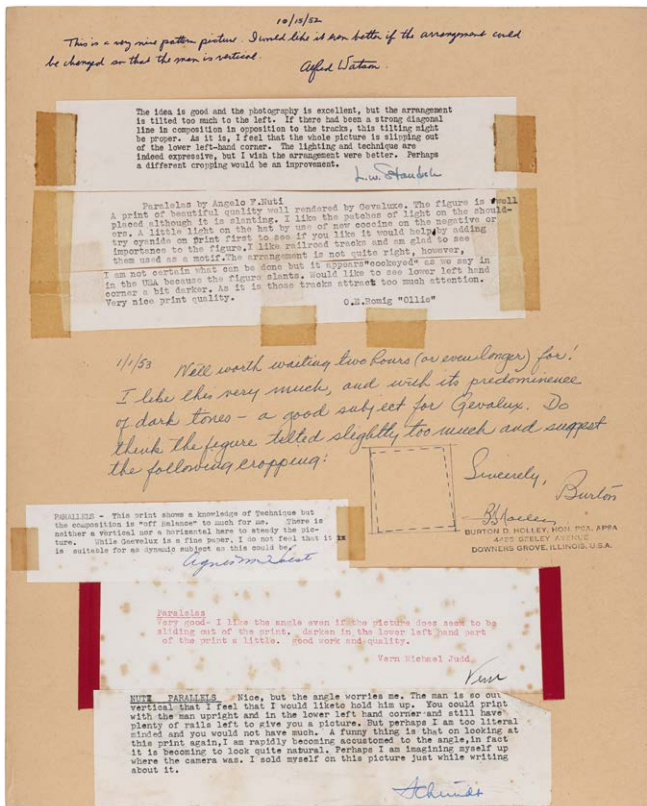 10/15/52
This is a very nice pattern picture. I would like it even better if the arrangement could
be changed so that the man is vertical.
Alfred Watson.
The idea is good and the photography is excellent, but the arrangement
is tilted too much to the left. If there had been a strong diagonal
line in composition in opposition to the tracks, this tilting might
be proper. As it is, I feel that the whole picture is slipping out
of the lower left-hand corner. The lighting and technique are
indeed expressive, but I wish the arrangement were better. Perhaps
a different cropping would be an improvement.
L.W. Standish
Paralelas by Angelo F.Nuti
A print of beautiful quality well rendered by Gevaluxe. The figure is well
placed although it is slanting. I like the patches of light on the should-
ers. A little light on the hat by use of new coccine on the negative or
try cyanide on print first to see if you like it would help by adding
importance to the figure.I like railroad tracks and am glad to see
them used as a motif.The arrangement is not quite right, however,
I am not certain what can be done but it appears"cockeyed" as we say in
in the USA because the figure slants. Would like to see lower left hand
corner a bit darker. As it is those tracks attract too much attention.
Very nice print quality.
O.E.Romig "Ollie"
1/1/53 Well worth waiting two hours (or even longer) for!
I like this very much, and with its predominence
of dark tones - a good subject for Gevalux. Do
think the figure tilted slightly too much and suggest
the following cropping:
Sincerely,
Burton
BURTON D. HOLLEY, HON. PSA, APPA
4425 SEELEY AVENUE
DOWNERS GROVE, ILLINOIS, U.S.A.
PARALLELS - This print shows a knowledge of Technique but
the composition is "off Balance" to much for me. There is
neither a vertical nor a horizantal here to steady the pic-
ture. While Geevalux is a fine paper, I do not feel that it is
is suitable for as dynamic subject as this could be.
Agnes M
Paralelas
Very good- I like the angle even if the picture does seem to be
sliding out of the print. darken in the lower left hand part
of the print a little. good work and quality.
Vern Michael Judd
Vern
NUTI PARALLELS Nice, but the angle worries me. The man is so out
vertical that I feel that I would liketo hold him up. You could print
with the man upright and in the lower left hand corner and still have
plenty of rails left to give you a picture. But perhaps I am too literal
minded and you would not have much. A funny thing is that on looking at
this print again,I am rapidly becoming accustomed to the angle,in fact
it is becoming to look quite natural. Perhaps I am imagining myself up
where the camera was. I sold myself on this picture just while writing
about it.